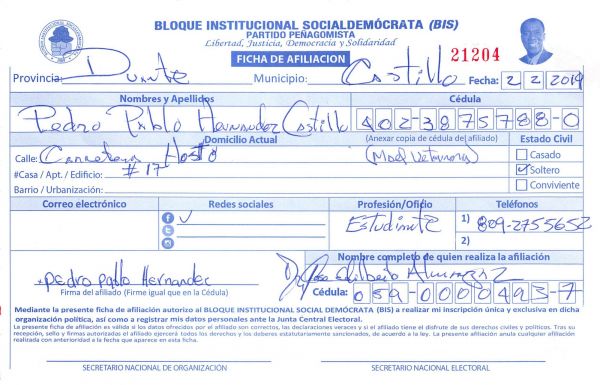 BLOQUE INSTITUCIONAL SOCIALDEMÓCRATA (BIS)
PARTIDO PEÑAGOMISTA
Libertad, Justicia, Democracia y Solidaridad
FICHA DE AFILIACION
21204
Provincia: Duarte Municipio: Castillo Fecha: 2 2 2019
Nombres y Apellidos Cédula
Pedro Pablo Hernandez Castillo 402-3875788-0
Domicilio Actual (Anexar copia de cédula del afiliado) Estado Civil
Calle: Carretera Hosto Casado
#Casa / Apt. / Edificio: #17 Soltero
Barrio / Urbanización: Conviviente
Correo electrónico Redes sociales Profesión/Oficio Teléfonos
Estudiante 1) 809-2755652
2)
Nombre completo de quien realiza la afiliación
pedro pablo Hernandez
Firma del afiliado (Firme igual que en la Cédula) Cédula: 059-0000493-7
Mediante la presente ficha de afiliación autorizo al BLOQUE INSTITUCIONAL SOCIAL DEMÓCRATA (BIS) a realizar mi inscripción única y exclusiva en dicha
organización política, así como a registrar mis datos personales ante la Junta Central Electoral.
La presente ficha de afiliación es válida si los datos ofrecidos por el afiliado son correctos, las declaraciones veraces y si el afiliado tiene el disfrute de sus derechos civiles y políticos. Tras su
recepción, sello y firmas autorizadas el afiliado ejercerá todos los derechos y los deberes estatutariamente sancionados, de acuerdo a la ley. La presente afiliación anula cualquier afiliación
realizada con anterioridad a la fecha que aparece en esta ficha.
SECRETARIO NACIONAL DE ORGANIZACIÓN SECRETARIO NACIONAL ELECTORAL